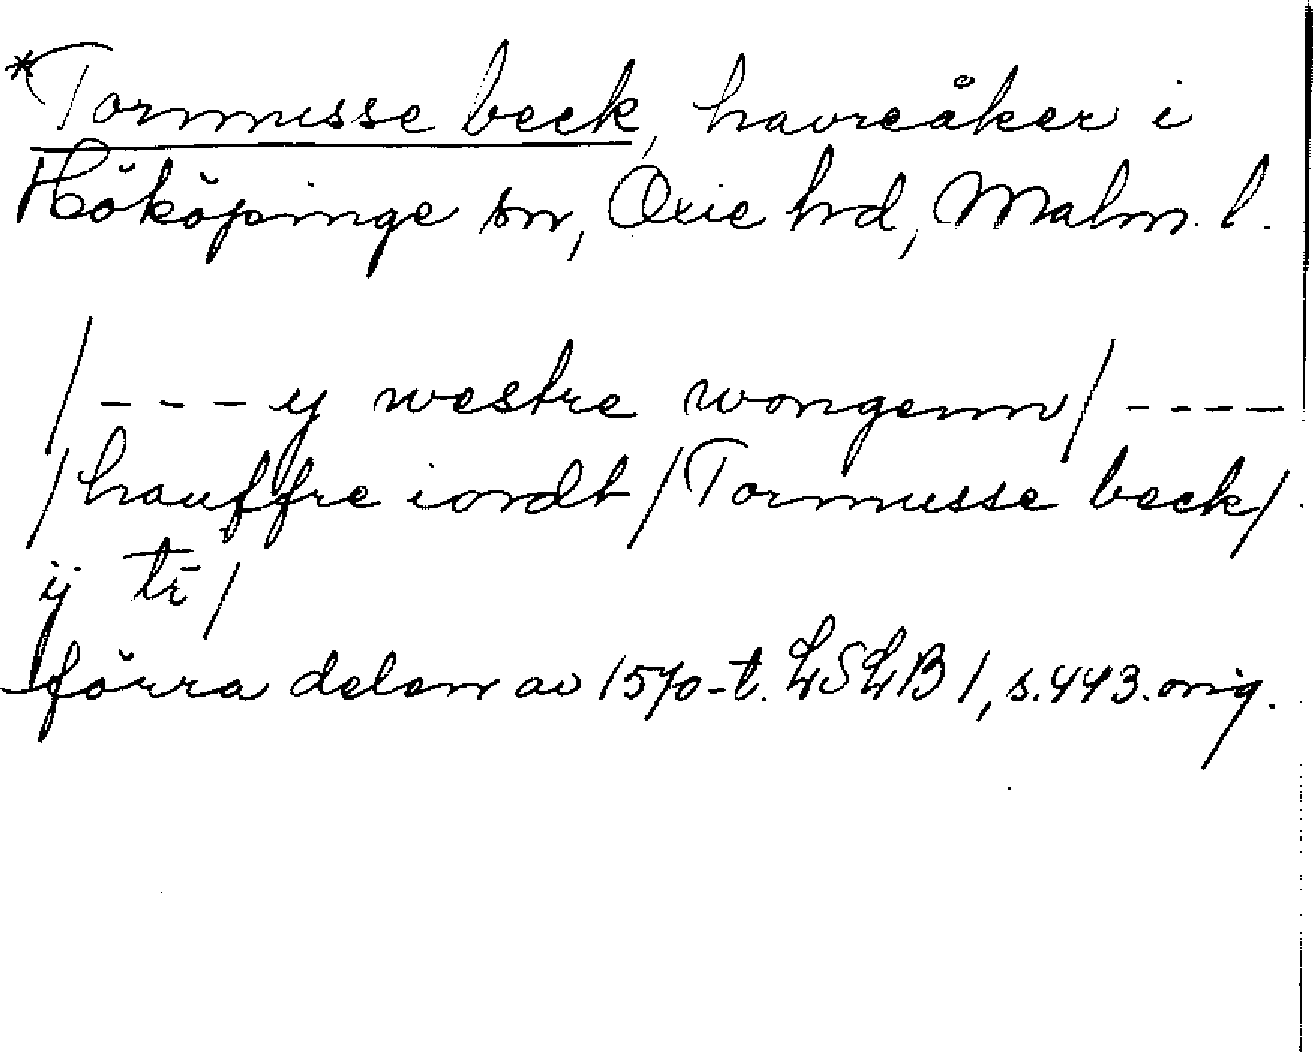 *Tormusse beck, havreåker i
Hököpinge sn, Oxie hrd, Malm. l.
/---y westre wongenn/----
/hauffre iordt/Tormusse beck/
ij tr/
förra delen av 1570-t. LSLB 1, s.443. orig.